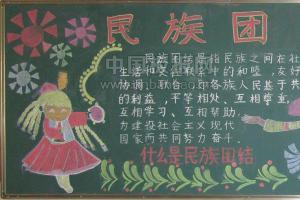 民族团
民族团结是指民族之间在社
生活和交往联系中的和睦、友好
协调、联合。即各族人民基于共
的利益，平等相处、互相尊重，
互相学习、互相帮助
方建设社会主义现代
国家而共同努力奋斗
什么是民族团结